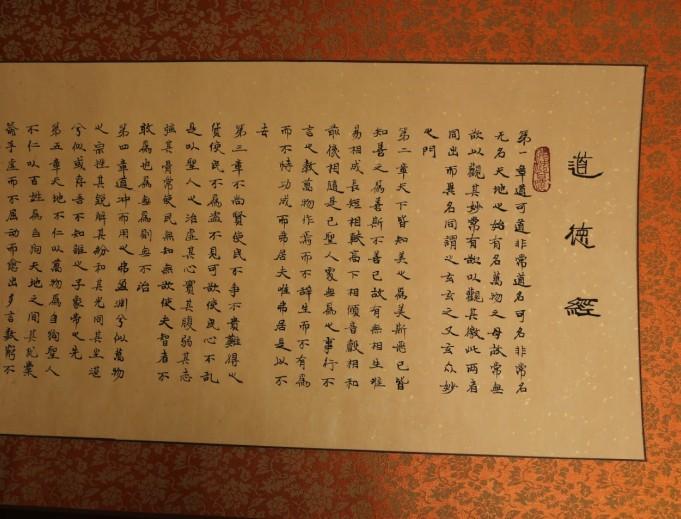 道德經
第一章道可道非常道名可名非常名
无名天地之始有名萬物之母故常無
欲以觀其妙常有欲以觀其徼此兩者
同出而異名同謂之玄玄之又玄众妙
之門
第二章天下皆知美之為美斯惡已皆
知善之為善斯不善已故有無相生难
易相成長短相較高下相傾音聲相和
前後相隨是已聖人處無為之事行不
言之教萬物作焉而不辞生而不有為
而不恃功成而弗居夫唯弗居是以不
去
第三章不尚賢使民不争不貴難得之
貨使民不為盗不見可欲使民心不乱
是以聖人之治虛其心實其腹弱其志
強其骨常使民無知無欲使夫智者不
敢為也為無為則無不治
第四章道冲而用之弗盈渊兮似萬物
之宗挫其銳解其紛和其光同其尘湛
兮似或存吾不知雖之子象帝之先
第五章天地不仁以萬物為刍狗聖人
不仁以百姓為刍狗天地之間其犹橐
籥乎虛而不屈动而愈出多言数窮不